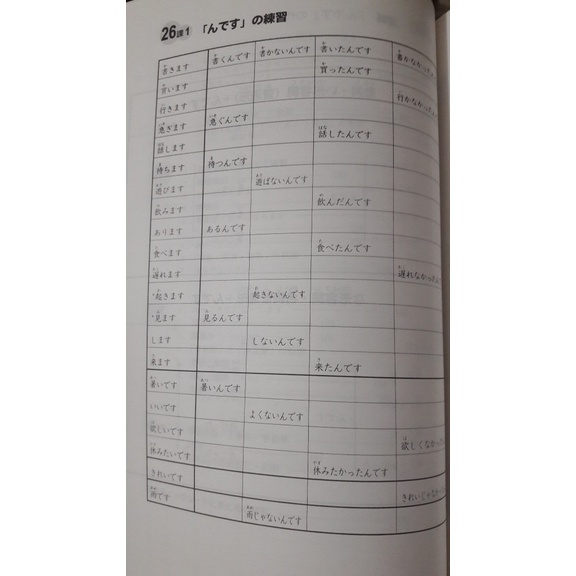 26課1 「んです」の練習
書きます 書くんです 書かないんです 書いたんです 書かなかったん
買います 買ったんです
行きます 行かなかったんです
急ぎます 急ぐんです
話します 話したんです
待ちます 待つんです
遊びます 遊ばないんです
飲みます 飲んだんです
あります あるんです
食べます 食べたんです
遅れます 遅れなかったんです
*起きます 起きないんです
*見ます 見るんです
します しないんです
来ます 来たんです
暑いです 暑いんです
いいです よくないんです
欲しいです 欲しくなかった
休みたいです 休みたかったんです
きれいです きれいじゃなかった
雨です 雨じゃないんです